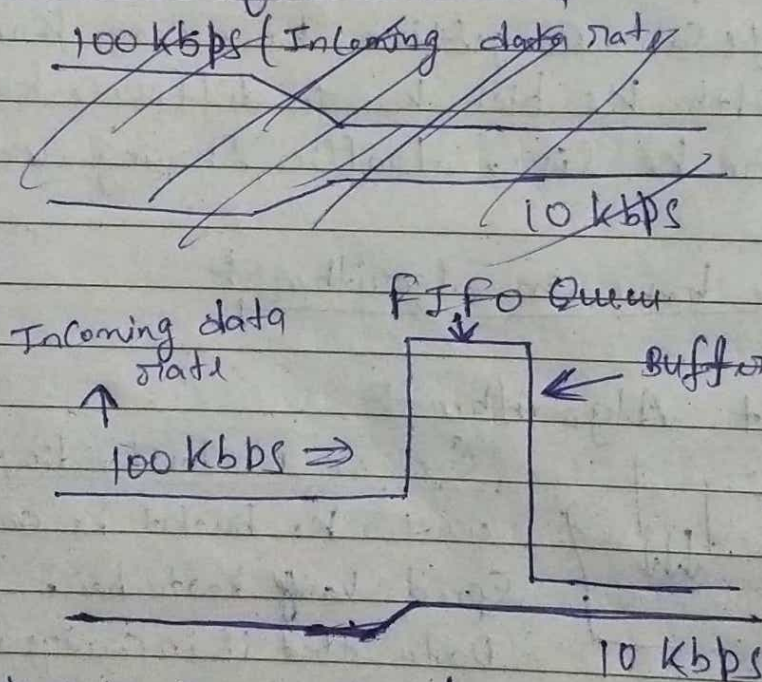 100 Kbps (Incoming data rate
10 kbps
FIFO Queue
Incoming data
rate
Buffer
100 Kbps ⇒
10 Kbps